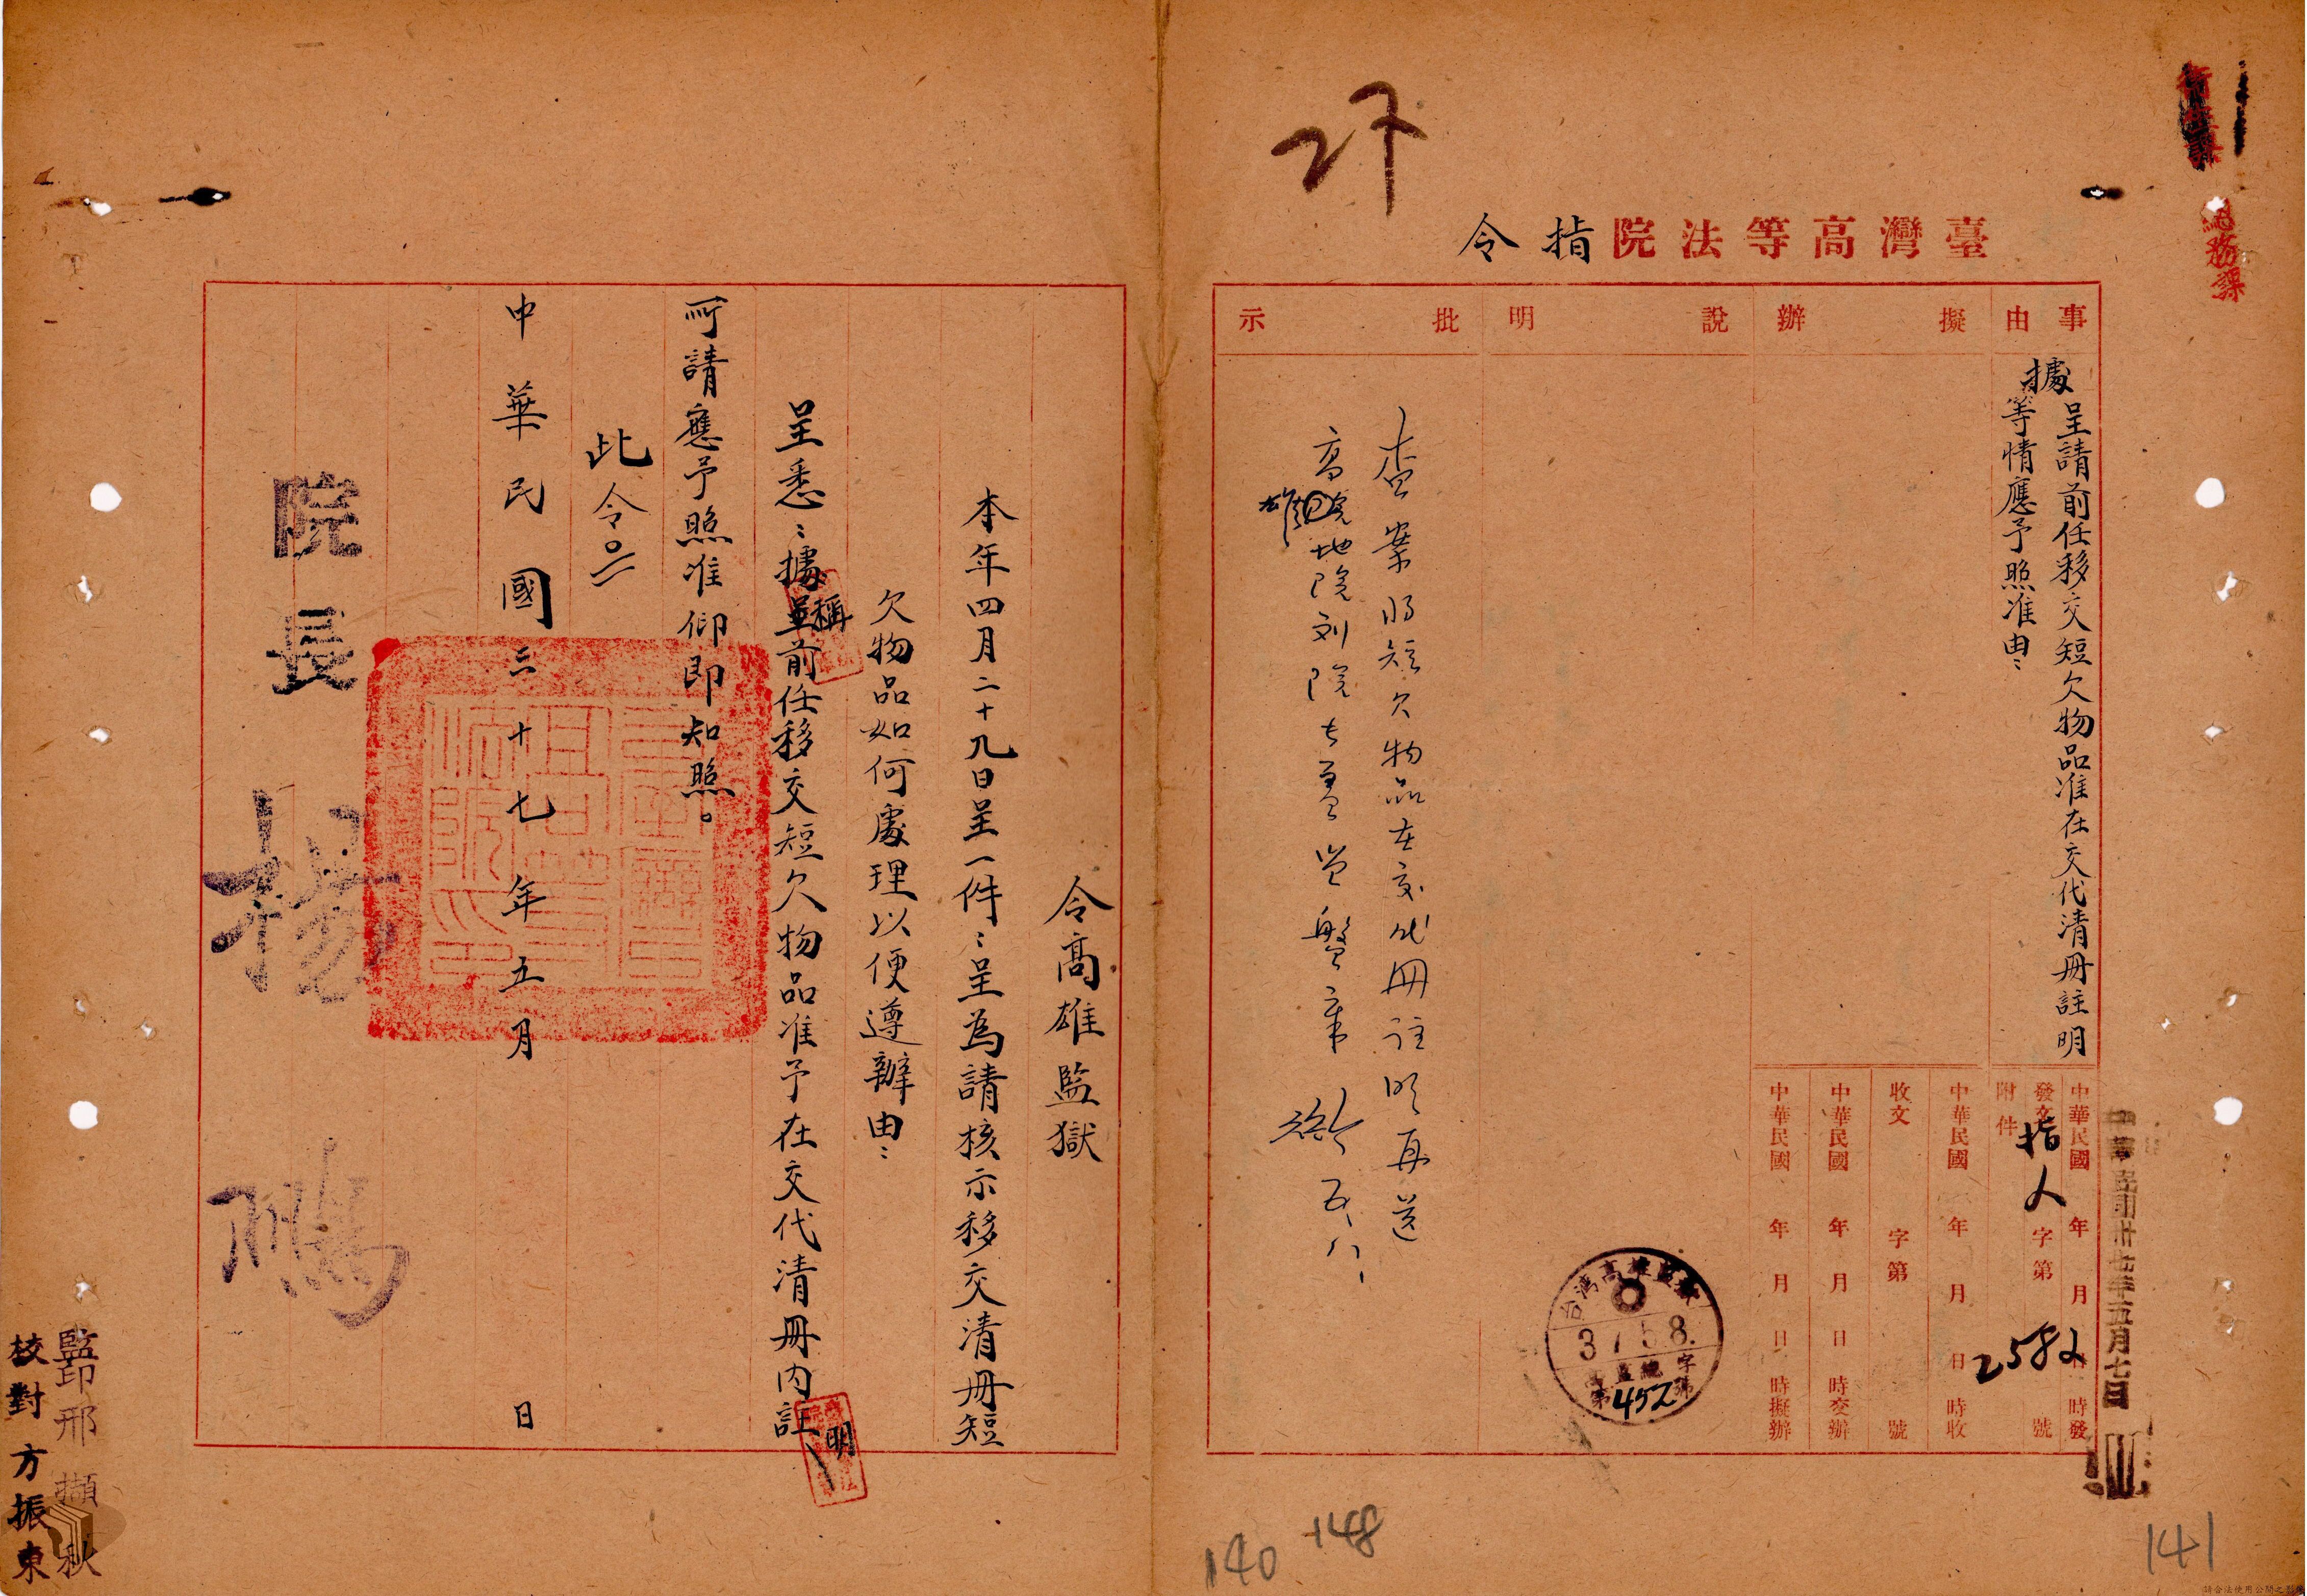 總務課
27
臺灣高等法院指令
事由
擬辦
說明
批示
據呈請前任移交短欠物品准在交代清冊註明
等情應予照准由
中華民國 年 月 日 時發
發文 指人 字第 2582 號
附件
中華民國 年 月 日 時收
收文 字第 號
中華民國 年 月 日 時交辦
中華民國 年 月 日 時擬辦
中華民國卅七年五月七日
查案將短欠物品在交代冊註明再送
高雄地院刘院長
五、八、
台灣高雄監獄
37.5.8.
字
第452號
令高雄監獄
本年四月二十九日呈一件：呈為請核示移交清冊短
欠物品如何處理以便遵辦由：
呈悉：據稱前任移交短欠物品准予在交代清冊內註明
所請應予照准仰即知照。
此令。
中華民國三十七年五月 日
院長 楊鵬
監印邢擷秋
校對方振東
140
148
141